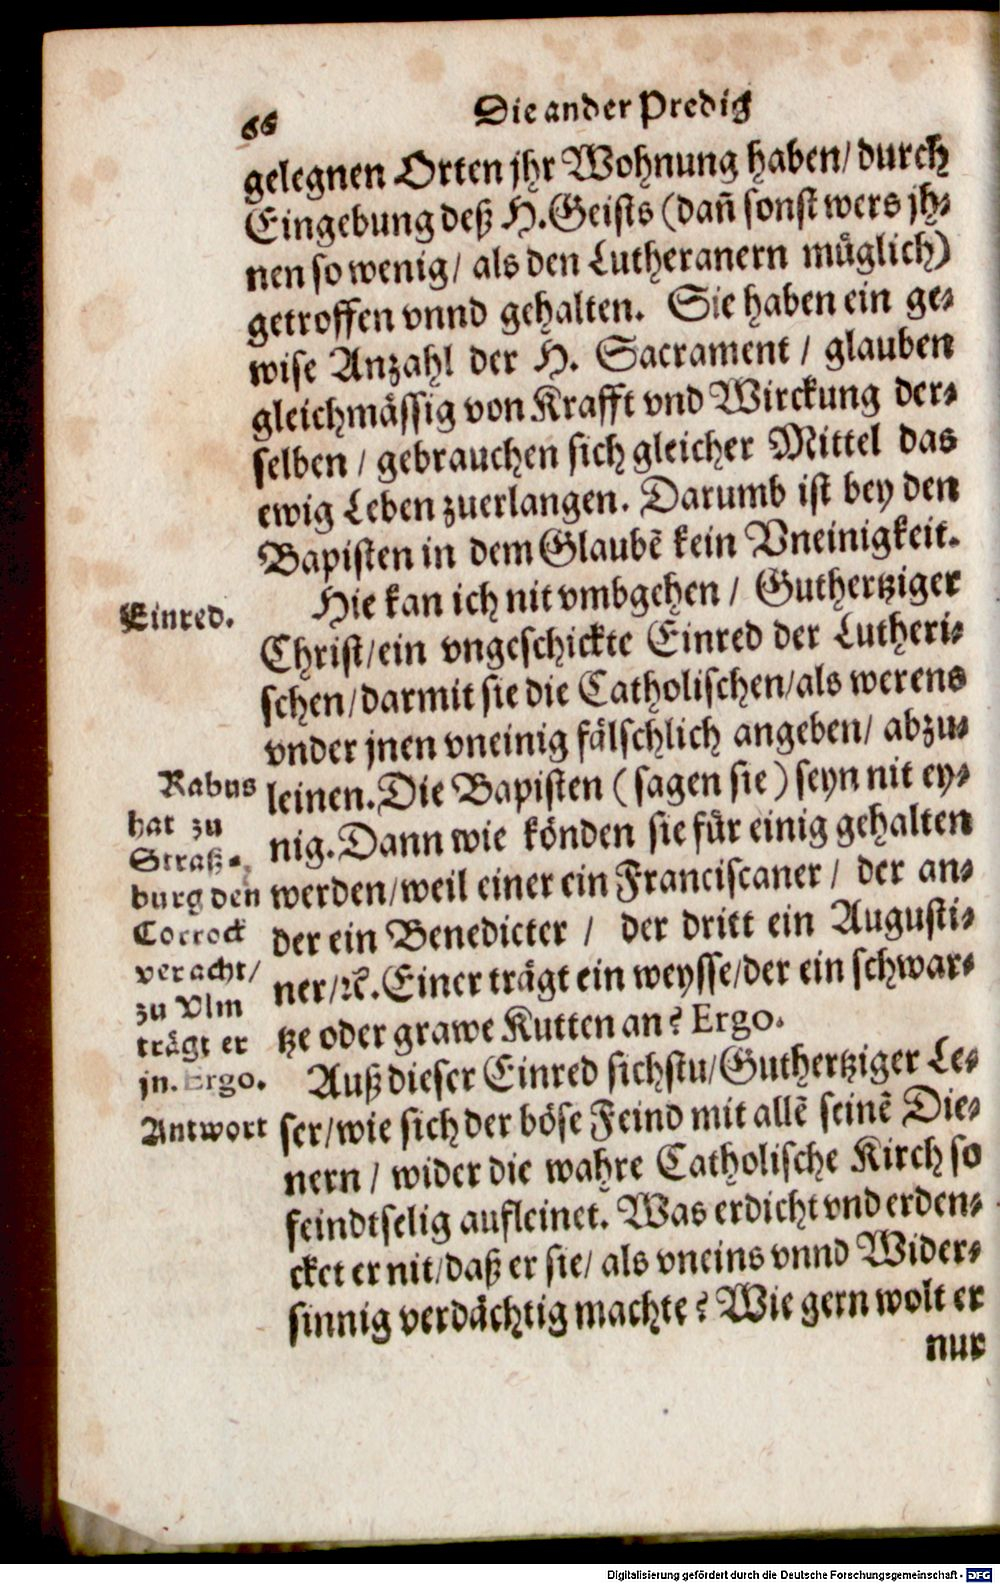 66
Die ander Predig
gelegnen Orten jhr Wohnung haben/ durch
Eingebung deß H. Geists (dañ sonst wers jh-
nen so wenig/ als den Lutheranern müglich)
getroffen vnnd gehalten. Sie haben ein ge-
wise Anzahl der H. Sacrament / glauben
gleichmässig von Krafft vnd Wirckung der-
selben / gebrauchen sich gleicher Mittel das
ewig Leben zuerlangen. Darumb ist bey den
Bapisten in dem Glaubē kein Vneinigkeit.
Einred.
Hie kan ich nit vmbgehen / Guthertziger
Christ/ ein vngeschickte Einred der Lutheri-
schen/ darmit sie die Catholischen/ als werens
vnder jnen vneinig fälschlich angeben/ abzu-
leinen. Die Bapisten (sagen sie) seyn nit ey-
nig. Dann wie könden sie für einig gehalten
werden/ weil einer ein Franciscaner / der an-
der ein Benedicter / der dritt ein Augusti-
ner/ ꝛc. Einer trägt ein weysse/ der ein schwar-
tze oder grawe Kutten an? Ergo.
Rabus
hat zu
Straß-
burg den
Corrock
veracht/
zu Vlm
trägt er
jn. Ergo.
Antwort
Auß dieser Einred sichstu/ Guthertziger Le-
ser/ wie sich der böse Feind mit allē seinē Die-
nern / wider die wahre Catholische Kirch so
feindtselig aufleinet. Was erdicht vnd erden-
cket er nit/ daß er sie/ als vneins vnnd Wider-
sinnig verdächtig machte? Wie gern wolt er
nur
Digitalisierung gefördert durch die Deutsche Forschungsgemeinschaft - DFG